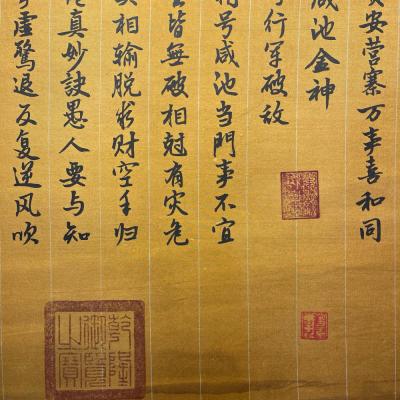 安营寨万事喜和同
咸池金神
行军破敌
号咸池当門事不宜
皆無破相尅有灾危
相输脱求财空手归
真妙訣愚人要与知
虚驚退反复逆风吹
乾隆御覽之寶